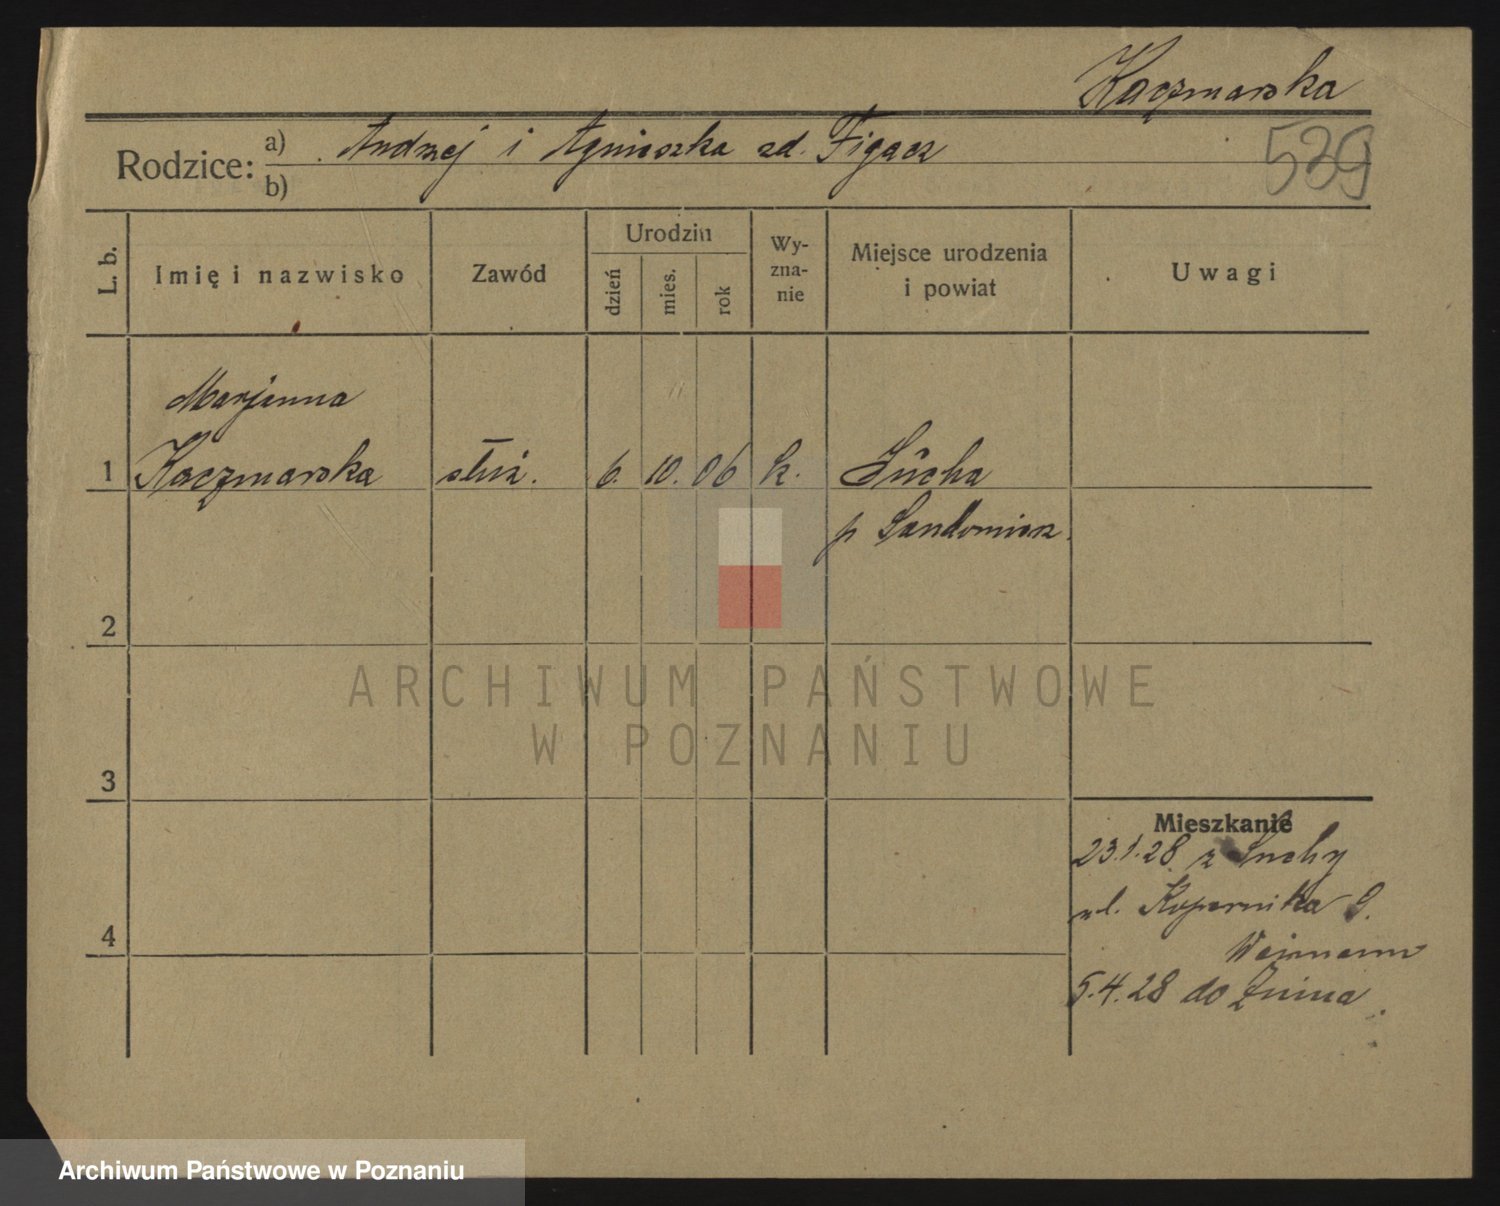 Kaczmarska
529
Rodzice:
a) Andrzej i Agnieszka zd. Figacz
b)
L. b.
Imię i nazwisko
Zawód
Urodzin
dzień
mies.
rok
Wy-
zna-
nie
Miejsce urodzenia
i powiat
Uwagi
Marjanna
1 Kaczmarska służ. 6. 10. 06 k. Sucha
p Sandomierz.
2
3
4
Mieszkanie
23.1.28 z Suchy
ul. Kopernika 9.
Weimann
5.4.28 do Żnina
ARCHIWUM PAŃSTWOWE
W POZNANIU
Archiwum Państwowe w Poznaniu